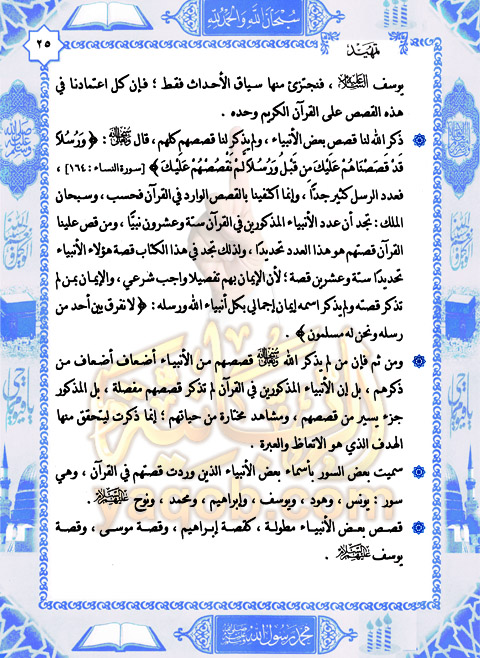 سبحان الله والحمد لله
تمهيد
٢٥
يوسف عليه السلام ، فنجتزئ منها سياق الأحداث فقط ؛ فإن كل اعتمادنا في
هذه القصص على القرآن الكريم وحده .
ذكر الله لنا قصص بعض الأنبياء ، ولم يذكر لنا قصصهم كلهم ، قال تعالى : ﴿ وَرُسُلاً
قَدْ قَصَصْنَاهُمْ عَلَيْكَ مِن قَبْلُ وَرُسُلاً لَّمْ نَقْصُصْهُمْ عَلَيْكَ ﴾ [سورة النساء : ١٦٤] ،
فعدد الرسل كثير جدًّا ، وإنما اكتفينا بالقصص الوارد في القرآن فحسب ، وسبحان
الملك : تجد أن عدد الأنبياء المذكورين في القرآن ستة وعشرون نبيًّا ، ومن قص علينا
القرآن قصتهم هو هذا العدد تحديدًا ، ولذلك تجد في هذا الكتاب قصة هؤلاء الأنبياء
تحديدًا ستة وعشرين قصة ؛ لأن الإيمان بهم تفصيلا واجب شرعي ، والإيمان بمن لم
تذكر قصته ولم يذكر اسمه إيمان إجمالي بكل أنبياء الله ورسله : ﴿ لا نفرق بين أحد من
رسله ونحن له مسلمون ﴾ .
ومن ثم فإن من لم يذكر الله تعالى قصصهم من الأنبياء أضعاف أضعاف من
ذكرهم ، بل إن الأنبياء المذكورين في القرآن لم تذكر قصصهم مفصلة ، بل المذكور
جزء يسير من قصصهم ، ومشاهد مختارة من حياتهم ؛ إنما ذكرت ليتحقق منها
الهدف الذي هو الاتعاظ والعبرة .
سميت بعض السور بأسماء بعض الأنبياء الذين وردت قصتهم في القرآن ، وهي
سور : يونس ، وهود ، ويوسف ، وإبراهيم ، ومحمد ، ونوح عليهم السلام .
قصص بعض الأنبياء مطولة ، كقصة إبراهيم ، وقصة موسى ، وقصة
يوسف عليهم السلام .
محمد رسول الله